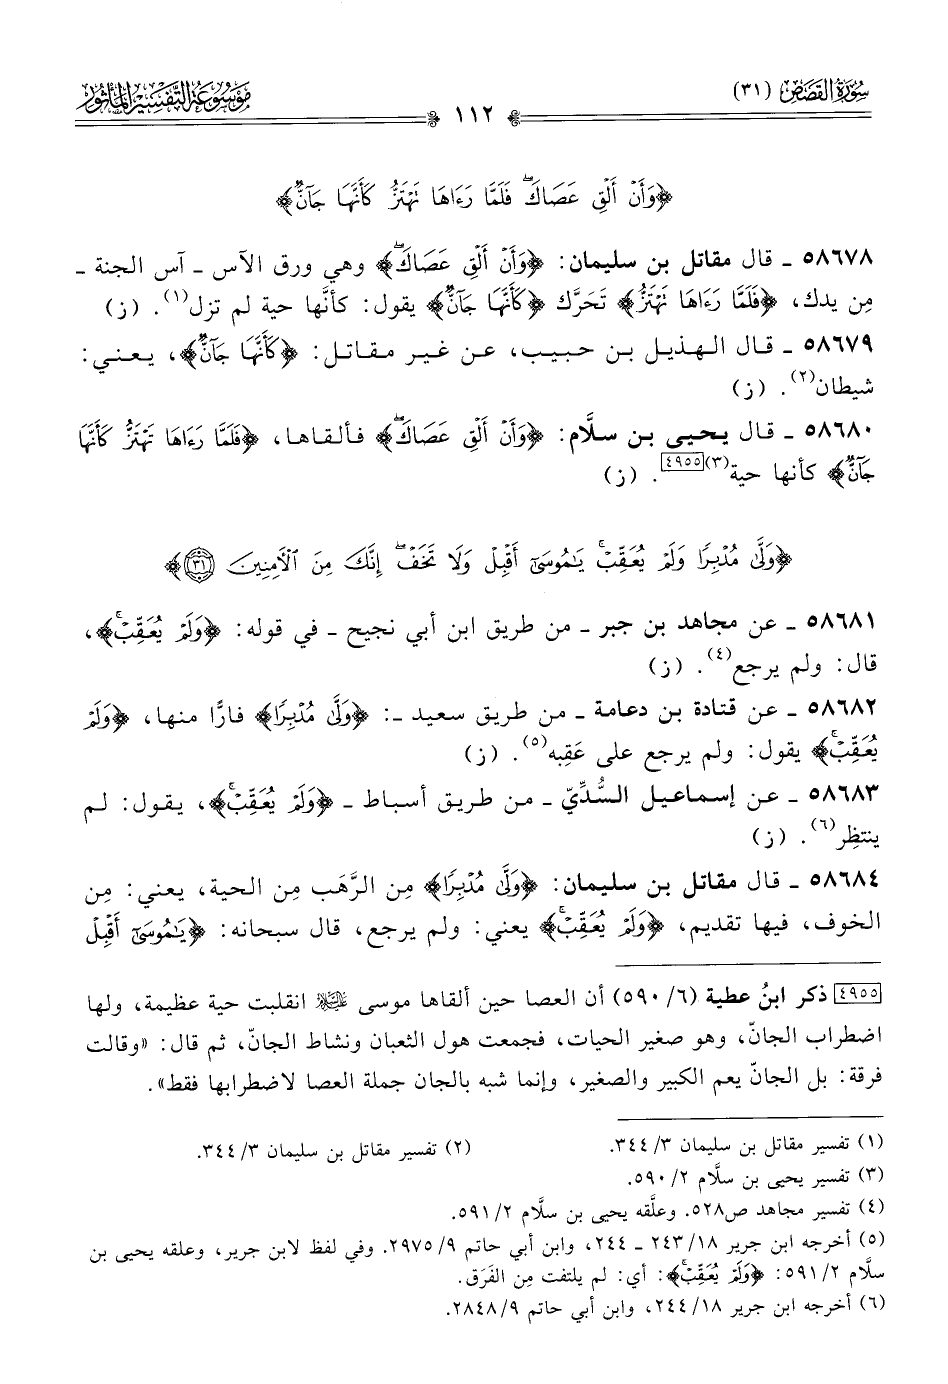 سُورَةُ القَصَصِ (٣١)
١١٢
مَوْسُوعَةُ التَّفْسِيرِ المَأْثُورِ
﴿وَأَنْ أَلْقِ عَصَاكَۖ فَلَمَّا رَءَاهَا تَهْتَزُّ كَأَنَّهَا جَآنٌّ﴾
٥٨٦٧٨ ـ قال مقاتل بن سليمان: ﴿وَأَنْ أَلْقِ عَصَاكَۖ﴾ وهي ورق الآس ـ آس الجنة ـ
مِن يدك، ﴿فَلَمَّا رَءَاهَا تَهْتَزُّ﴾ تَحَرَّك ﴿كَأَنَّهَا جَآنٌّ﴾ يقول: كأنَّها حية لم تزل(١). (ز)
٥٨٦٧٩ ـ قال الهذيل بن حبيب، عن غير مقاتل: ﴿كَأَنَّهَا جَآنٌّ﴾، يعني:
شيطان(٢). (ز)
٥٨٦٨٠ ـ قال يحيى بن سلَّام: ﴿وَأَنْ أَلْقِ عَصَاكَۖ﴾ فألقاها، ﴿فَلَمَّا رَءَاهَا تَهْتَزُّ كَأَنَّهَا
جَآنٌّ﴾ كأنها حية(٣)[٤٩٥٥]. (ز)
﴿وَلَّىٰ مُدْبِرًا وَلَمْ يُعَقِّبْۚ يَٰمُوسَىٰٓ أَقْبِلْ وَلَا تَخَفْۖ إِنَّكَ مِنَ ٱلْأَمِنِينَ ٣١﴾
٥٨٦٨١ ـ عن مجاهد بن جبر ـ من طريق ابن أبي نجيح ـ في قوله: ﴿وَلَمْ يُعَقِّبْۚ﴾،
قال: ولم يرجع(٤). (ز)
٥٨٦٨٢ ـ عن قتادة بن دعامة ـ من طريق سعيد ـ: ﴿وَلَّىٰ مُدْبِرًا﴾ فارًّا منها، ﴿وَلَمْ
يُعَقِّبْۚ﴾ يقول: ولم يرجع على عَقِبه(٥). (ز)
٥٨٦٨٣ ـ عن إسماعيل السُّدِّيّ ـ من طريق أسباط ـ ﴿وَلَمْ يُعَقِّبْۚ﴾، يقول: لم
ينتظِر(٦). (ز)
٥٨٦٨٤ ـ قال مقاتل بن سليمان: ﴿وَلَّىٰ مُدْبِرًا﴾ مِن الرَّهَب مِن الحية، يعني: مِن
الخوف، فيها تقديم، ﴿وَلَمْ يُعَقِّبْۚ﴾ يعني: ولم يرجع، قال سبحانه: ﴿يَٰمُوسَىٰٓ أَقْبِلْ
[٤٩٥٥] ذكر ابنُ عطية (٦/ ٥٩٠) أن العصا حين ألقاها موسى عليه السلام انقلبت حية عظيمة، ولها
اضطراب الجانّ، وهو صغير الحيات، فجمعت هول الثعبان ونشاط الجانّ، ثم قال: «وقالت
فرقة: بل الجانّ يعم الكبير والصغير، وإنما شبه بالجان جملة العصا لاضطرابها فقط».
(١) تفسير مقاتل بن سليمان ٣/ ٣٤٤. (٢) تفسير مقاتل بن سليمان ٣/ ٣٤٤.
(٣) تفسير يحيى بن سلَّام ٢/ ٥٩٠.
(٤) تفسير مجاهد ص٥٢٨. وعلَّقه يحيى بن سلَّام ٢/ ٥٩١.
(٥) أخرجه ابن جرير ١٨/ ٢٤٣ ـ ٢٤٤، وابن أبي حاتم ٩/ ٢٩٧٥. وفي لفظ لابن جرير، وعلقه يحيى بن
سلَّام ٢/ ٥٩١: ﴿وَلَمْ يُعَقِّبْۚ﴾: أي: لم يلتفت مِن الفَرَق.
(٦) أخرجه ابن جرير ١٨/ ٢٤٤، وابن أبي حاتم ٩/ ٢٨٤٨.